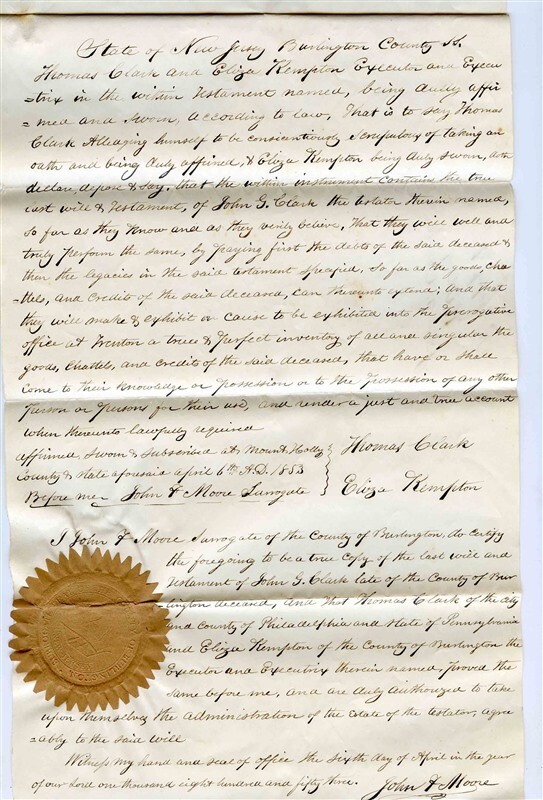 State of New Jersey Burlington County Ss.
Thomas Clark and Eliza Kempton Executor and Execu
=trix in the within Testament named, being duly affir
=med and Sworn, according to law, That is to say Thomas
Clark Alleaging himself to be consciantiously Scrupulous of taking an
oath and being duly affirmed, & Eliza Kempton being duly sworn, doth
declare, depose & say, that the within instrument contains the true
last will & Testament, of John G. Clark the testator therein named,
so far as they know and as they verily believe, That they will well and
truly perform the same, by paying first the debts of the said deceased &
then the legacies in the said testament specified, so far as the goods, chat
=tels, and credits of the said deceased, can thereunto extend; and that
they will make & exhibit or cause to be exhibited into the Prerogative
office at Trenton a true & perfect inventory of all and singular the
goods, Chattels, and credits of the said deceased, that have or shall
come to their knowledge or possession or to the possession of any other
person or persons for their use, and render a just and true account
when thereunto lawfully required
affirmed, Sworn & Subscribed at Mount Holly
County & state aforesaid april 6th A.D. 1853
Before me John F Moore Surrogate
Thomas Clark
Eliza Kempton
I John F Moore Surrogate of the County of Burlington, do certify
the foregoing to be a true copy of the last will and
testament of John G. Clark late of the County of Bur
lington deceased, and that Thomas Clark of the city
and county of Philadelphia and state of Pennsylvania
and Eliza Kempton of the County of Burlington the
Executor and Executrix therein named, proved the
same before me, and are duly authorized to take
upon themselves the administration of the Estate of the testator, agree
=ably to the said will
Witness my hand and seal of office the sixth day of April in the year
of our Lord one thousand eight hundred and fifty three. John F Moore